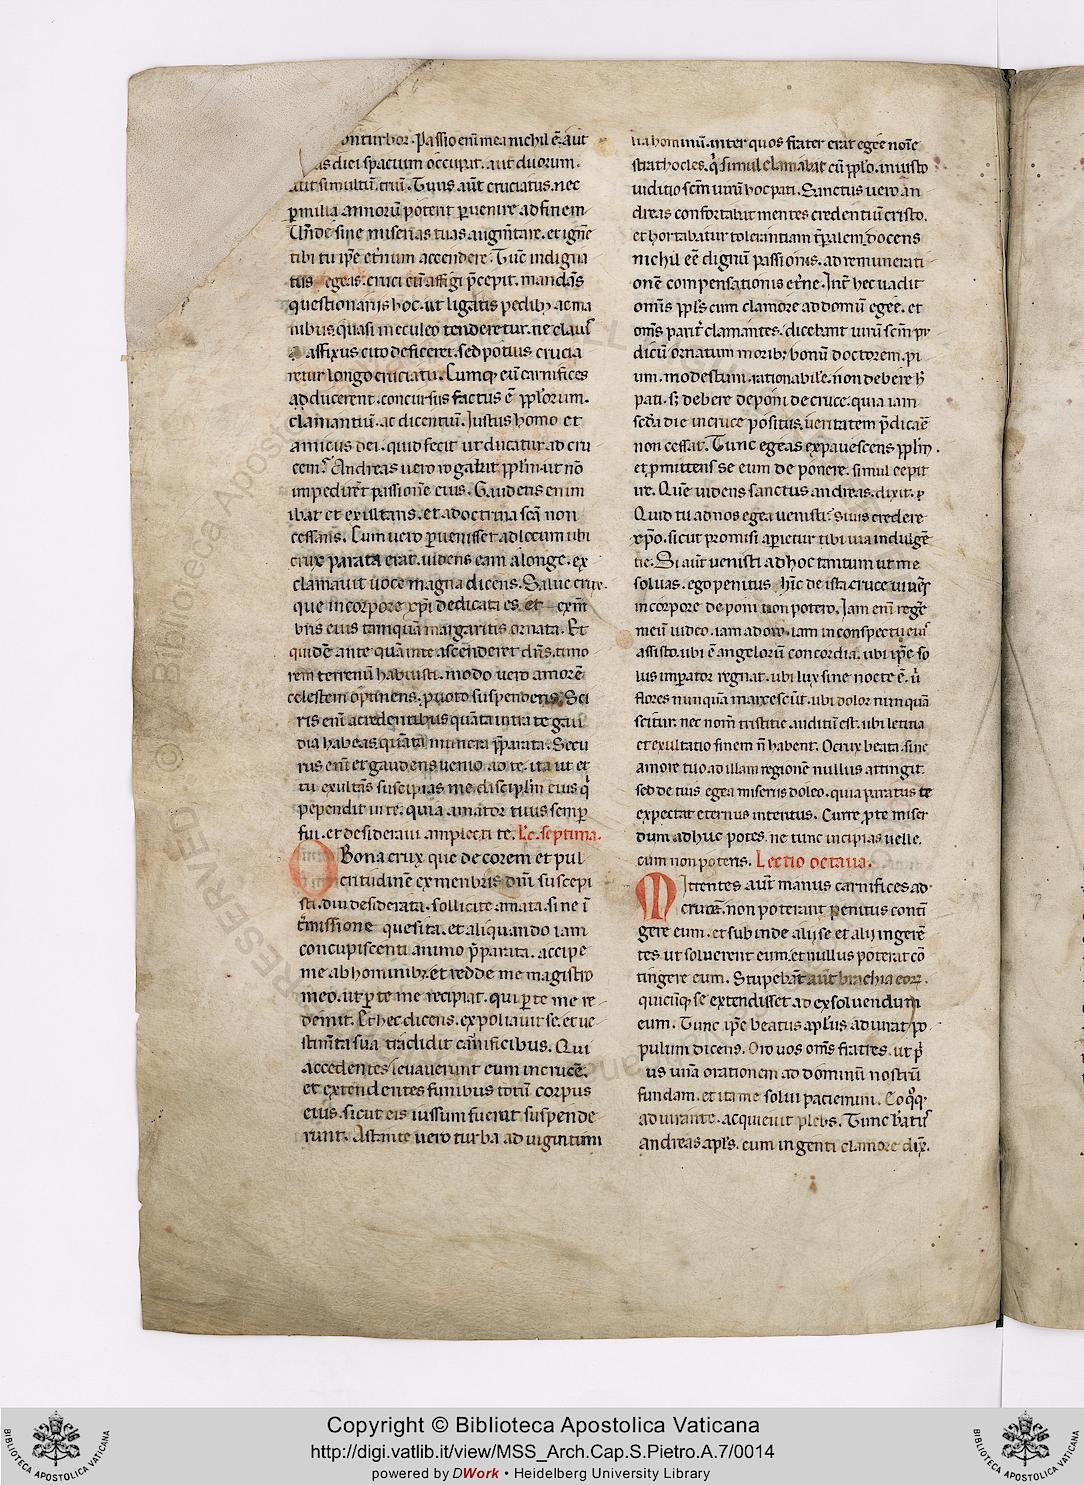 onturbor. Passio eni᷒ mea nichil ē. aut
as diei spatium occupat. aut duorum.
aut si multū. triū. Tuus aūt cruciatus. nec
p̱ milia annorū potent p̱uenire ad finem
Un̄de sine miserias tuas augm̄tare. et ignē
tibi tu ip̄e et̄num accendere. Tūc indigna
tus egeas. cruci eū affigi p̄cepit. mandās
questionariis hoc. ut ligatis pedib; ac ma
nibus quasi in eculeo tenderetur. ne clauis
affixus cito deficeret. sed potius crucia
retur longo cruciatu. Cumq; eū carnifices
adducerent. concursus factus ē pp̄lorum.
clamantiū. ac dicentiū. Iustus homo et
amicus dei. quid fecit ut ducatur ad cru
cem? Andreas uero rogabat pp̄lm. ut nō
impedir̄et passionē eius. Gaudens enim
ibat et exultans. et a doctrina sc̄a non
cessans. Cum uero p̱uenisset ad locum ubi
crux parata erat. uidens eam a longe. ex
clamauit uoce magna dicens. Salue crux.
que in corpore xp̄i dedicata es. et ex m̄
bris eius tanquā margaritis ornata. Et
quidē ante quā in te ascenderet dn̄s. timo
rem terrenū habuisti. modo uero amorē
celestem optinens. p̱ uoto suspenderis. Sci
ris eni᷒ a credentibus quāta intra te gau
dia habeas. quāta munera p̄parata. Secu
rus em̄ et gaudens uenio ad te. ita ut et
tu exultās suscipias me discipl̄m eius q̇
pependit in te. quia amator tuus semp̱
fui. et desideraui amplecti te. Lc̄. septima.
O Bona crux que decorem et pul
critudinē ex menbris dn̄i suscepi
sti. diu desiderata. sollicite amata. sine ī
t̄missione quesita. et aliquando iam
concupiscenti animo p̄parata. accipe
me ab hominib;. et redde me magistro
meo. ut p̱ te me recipiat. qui p̱ te me re
demit. Et hec dicens. expoliauit se. et ue
stim̄ta sua tradidit carnificibus. Qui
accedentes leuauerunt eum in crucē.
et extendentes funibus totū corpus
eius. sicut eis iussum fuerat suspende
runt. Astante uero turba ad uiginti mi
lia hominū. inter quos frater erat egee noīe
strathocles. q̇ simul clamabat cū pp̄lo. iniusto
iuditio sc̄m uirū hoc pati. Sanctus uero an
dreas confortabat mentes credentiū cristo.
et hortabatur tolerantiam tp̄alem. docens
nichil eē dignū passionis. ad remunerati
onē compensationis et̄ne. Int̄ hec uadit
omīs pp̄ls cum clamore ad domū egee. et
om̄s parit̄ clamantes. dicebant uirū sc̄m pu
dicū ornatum morib; bonū doctorem. pi
um. modestum. rationabilē. non debere h̄
pati. s; debere deponi de cruce. quia iam
sc̄da die in cruce positus. ueritatem p̄dicare
non cessat. Tunc egeas expauescens pp̄lm.
et p̱mittens se eum deponere. simul cepit
ire. Quē uidens sanctus andreas. dixit.
Quid tu ad nos egea uenisti? Si uis credere
xp̄o. sicut promisi ap̱ietur tibi uia indulgē
tie. Si aūt uenisti ad hoc tantum ut me
soluas. ego penitus hīc de ista cruce uiuēs
in corpore deponi non potero. Iam enī regē
meū uideo. iam adoro. iam in conspectu eius
assisto. ubi ē angelorū concordia. ubi ip̄e so
lus imp̱ator regnat. ubi lux sine nocte ē. u̇
flores nunquā marcescūt. ubi dolor nunquā
scitur. nec nom̄ tristitie auditū est. ubi letitia
et exultatio finem n̄ habent. O crux beata. sine
amore tuo ad illam regionē nullus attingit.
sed de tuis egea miseriis doleo. quia paratus te
expectat eternus interitus. Curre p̱ te miser
dum adhuc potes. ne tunc incipias uelle.
cum non poteris. Lectio octaua.
M Ittentes aūt manus carnifices ad
crucē. non poterant penitus contī
gere eum. et subinde alii se et alii ingerē
tes ut soluerent eum. et nullus poterat cō
tingere eum. Stupebāt aūt brachia eoꝝ.
quicūq; se extendisset ad exsoluendum
eum. Tunc ip̄e beatus apl̄us adiurat po
pulum dicens. Oro uos om̄s fratres. ut p̄
us unā orationem ad dominū nostrū
fundam. et ita me solui paciemini. Cōq;
adiurante. acquieuit plebs. Tunc b̄atus
andreas apl̄s. cum ingenti clamore dix̄.
Copyright © Biblioteca Apostolica Vaticana
http://digi.vatlib.it/view/MSS_Arch.Cap.S.Pietro.A.7/0014
powered by DWork • Heidelberg University Library
BIBLIOTECA APOSTOLICA VATICANA
BIBLIOTECA APOSTOLICA VATICANA